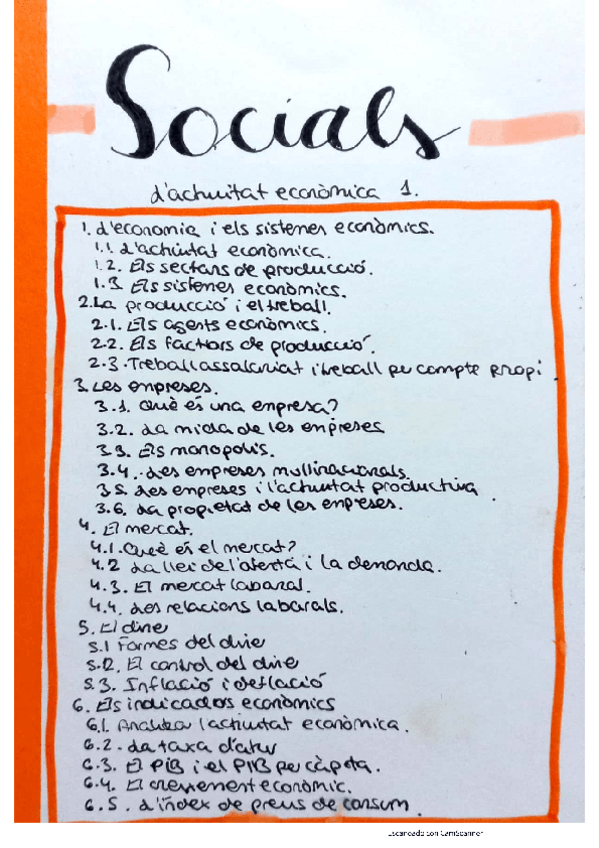 Socials
d'activitat econòmica 1.
1. d'economia i els sistemes econòmics.
1.1. d'activitat econòmica.
1.2. Els sectors de producció.
1.3. Els sistemes econòmics.
2. La producció i el treball.
2.1. Els agents econòmics.
2.2. Els factors de producció.
2.3. Treball assalariat i treball per compte propi.
3. Les empreses.
3.1. Què és una empresa?
3.2. La mida de les empreses
3.3. Els monopolis.
3.4. Les empreses multinacionals.
3.5. Les empreses i l'activitat productiva.
3.6. La propietat de les empreses.
4. El mercat.
4.1. Què és el mercat?
4.2 La llei de l'oferta i la demanda.
4.3. El mercat laboral.
4.4. Les relacions laborals.
5. El diner
5.1 Formes del diner
5.2. El control del diner
5.3. Inflació i deflació
6. Els indicadors econòmics
6.1. Analitzar l'activitat econòmica.
6.2. La taxa d'atur
6.3. El PIB i el PIB per càpita.
6.4. El creixement econòmic.
6.5. d'índex de preus de consum.
Escaneado con CamScanner